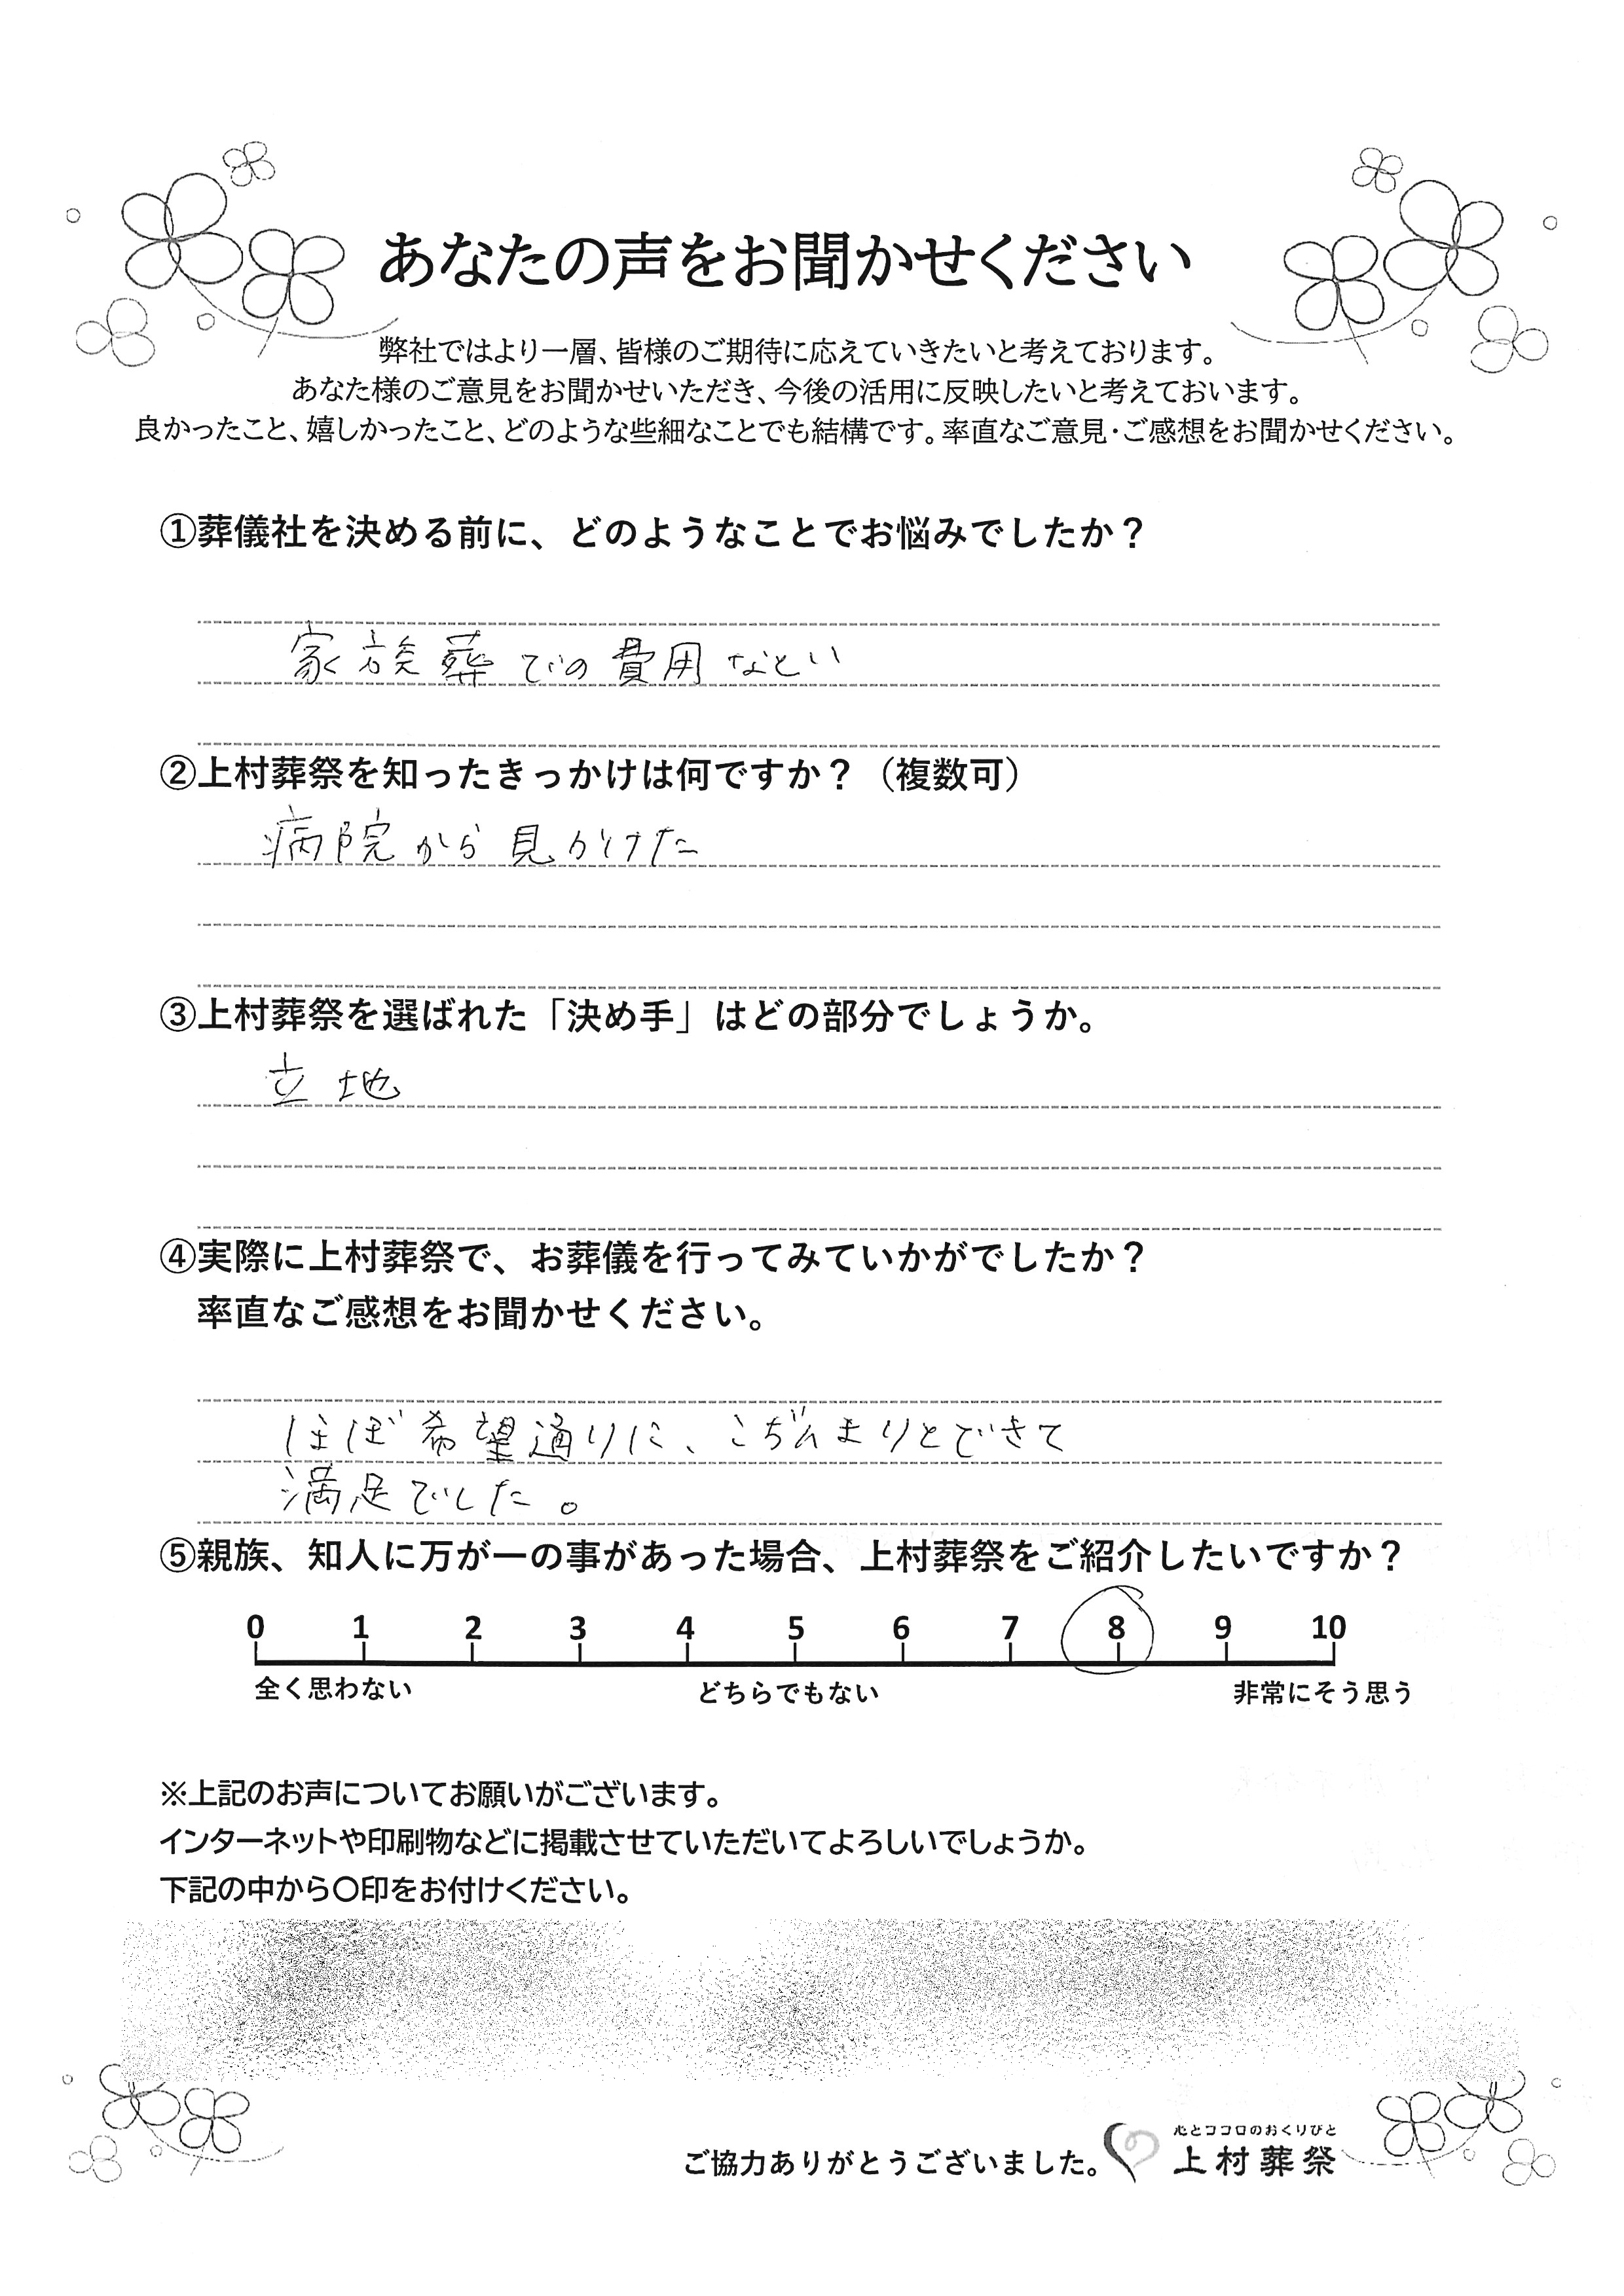 あなたの声をお聞かせください
弊社ではより一層、皆様のご期待に応えていきたいと考えております。
あなた様のご意見をお聞かせいただき、今後の活用に反映したいと考えておいます。
良かったこと、嬉しかったこと、どのような些細なことでも結構です。率直なご意見・ご感想をお聞かせください。
①葬儀社を決める前に、どのようなことでお悩みでしたか？
家族葬での費用など
②上村葬祭を知ったきっかけは何ですか？（複数可）
病院から見かけた
③上村葬祭を選ばれた「決め手」はどの部分でしょうか。
立地
④実際に上村葬祭で、お葬儀を行ってみていかがでしたか？
率直なご感想をお聞かせください。
ほぼ希望通りに、こぢんまりとできて
満足でした。
⑤親族、知人に万が一の事があった場合、上村葬祭をご紹介したいですか？
0 1 2 3 4 5 6 7 8 9 10
全く思わない どちらでもない 非常にそう思う
※上記のお声についてお願いがございます。
インターネットや印刷物などに掲載させていただいてよろしいでしょうか。
下記の中から〇印をお付けください。
心とココロのおくりびと
ご協力ありがとうございました。 上村葬祭